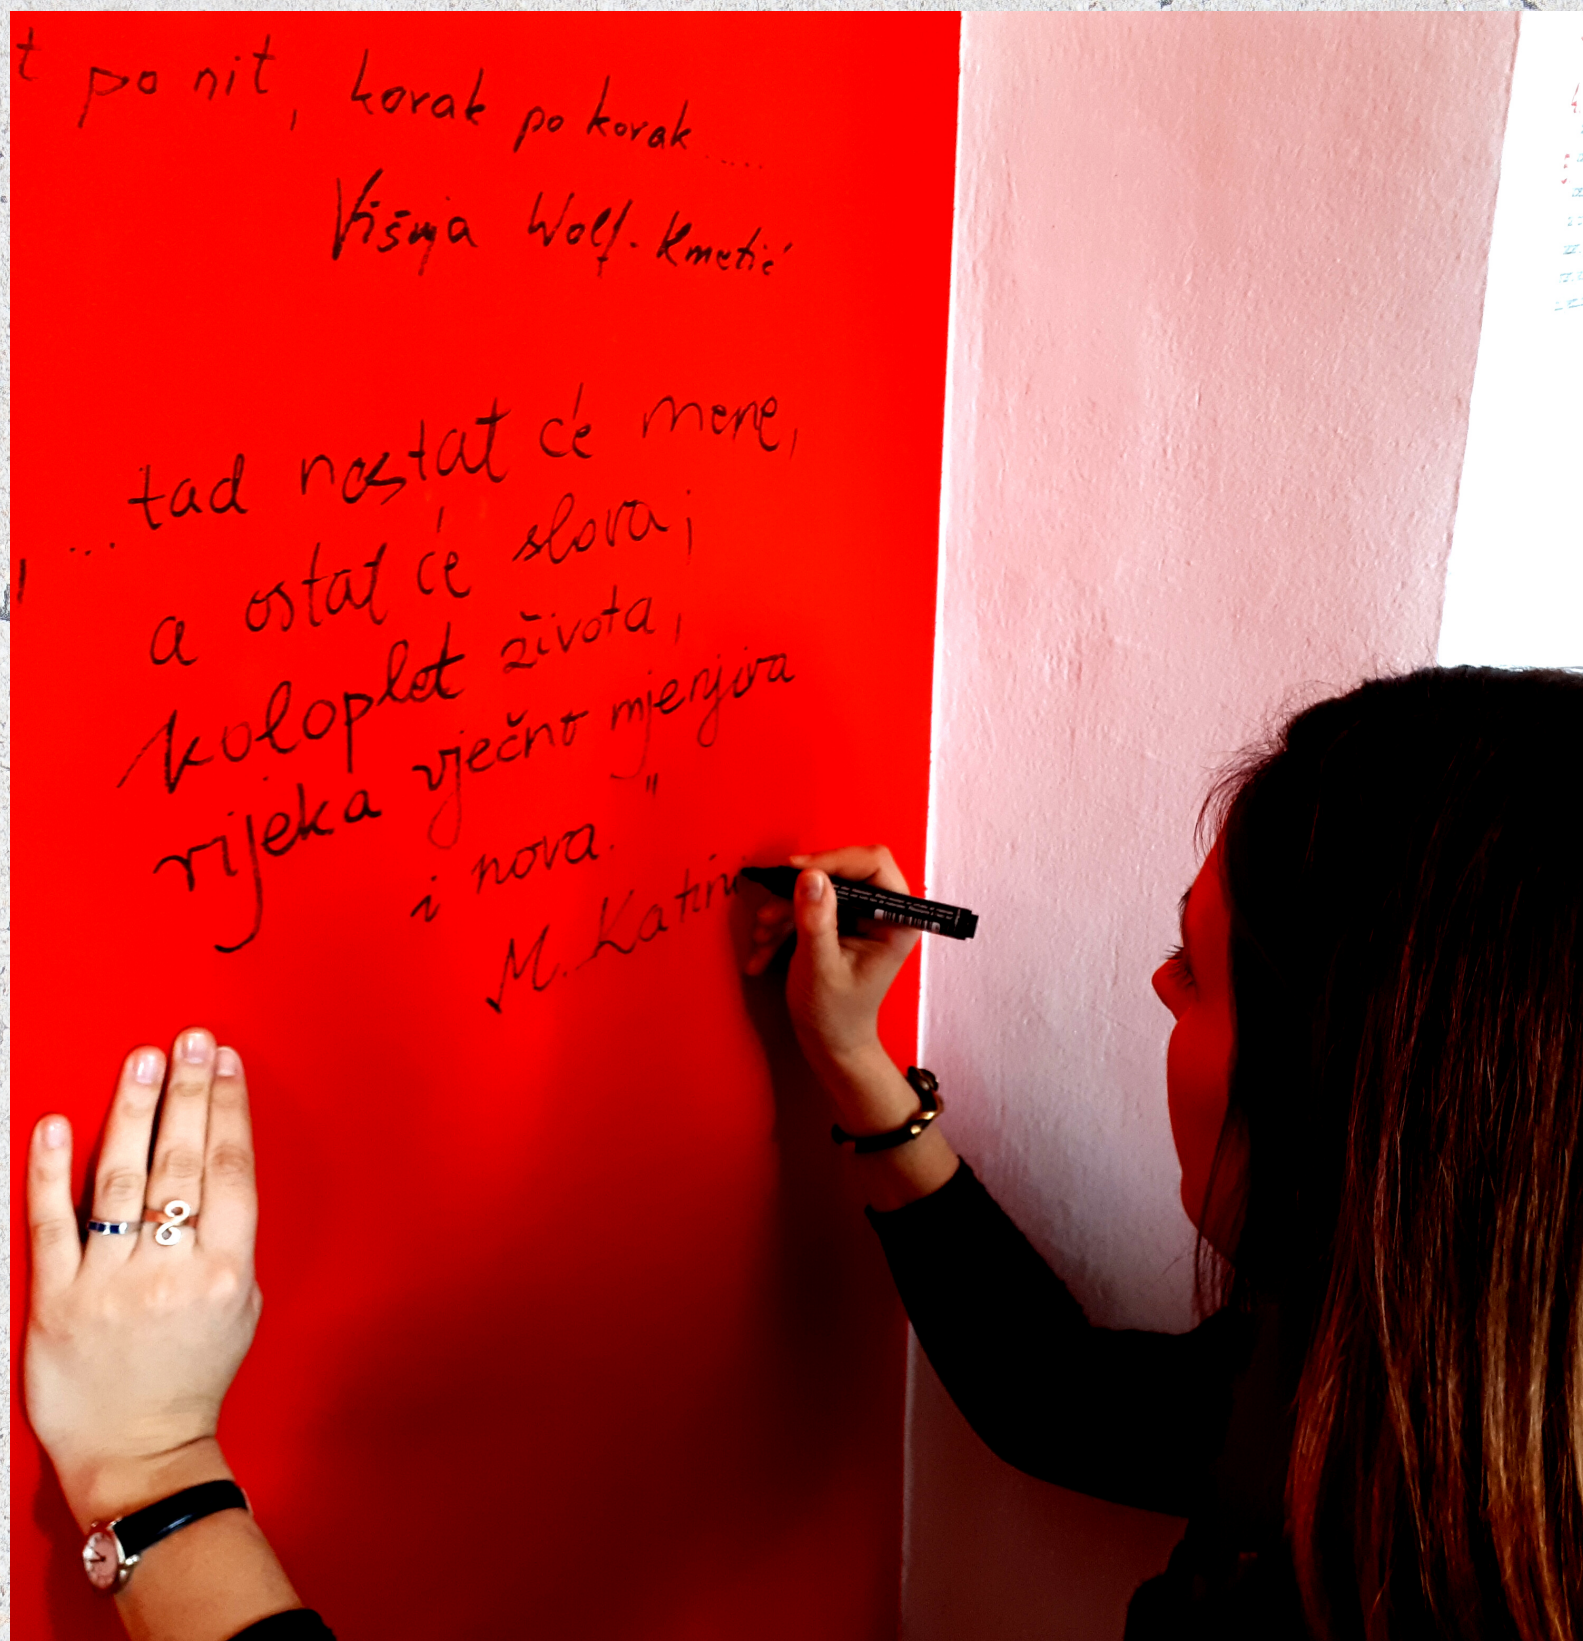 po nit, korak po korak....
Višnja Wolf-Kmetić
...tad nestat će mene,
a ostat će slova;
koloplet života,
rijeka vječno mjenjiva
i nova."
M. Katin